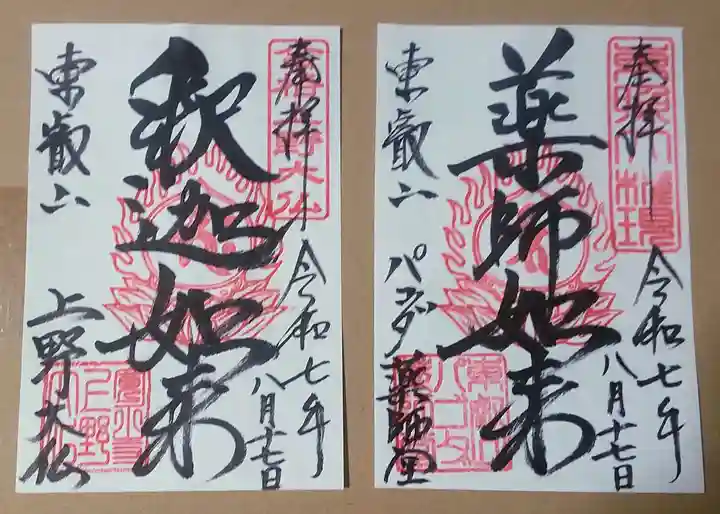 奉拝
令和七年
八月十七日
釈迦如来
東叡山
上野大仏
奉拝
令和七年
八月十七日
薬師如来
東叡山
パゴダ薬師堂